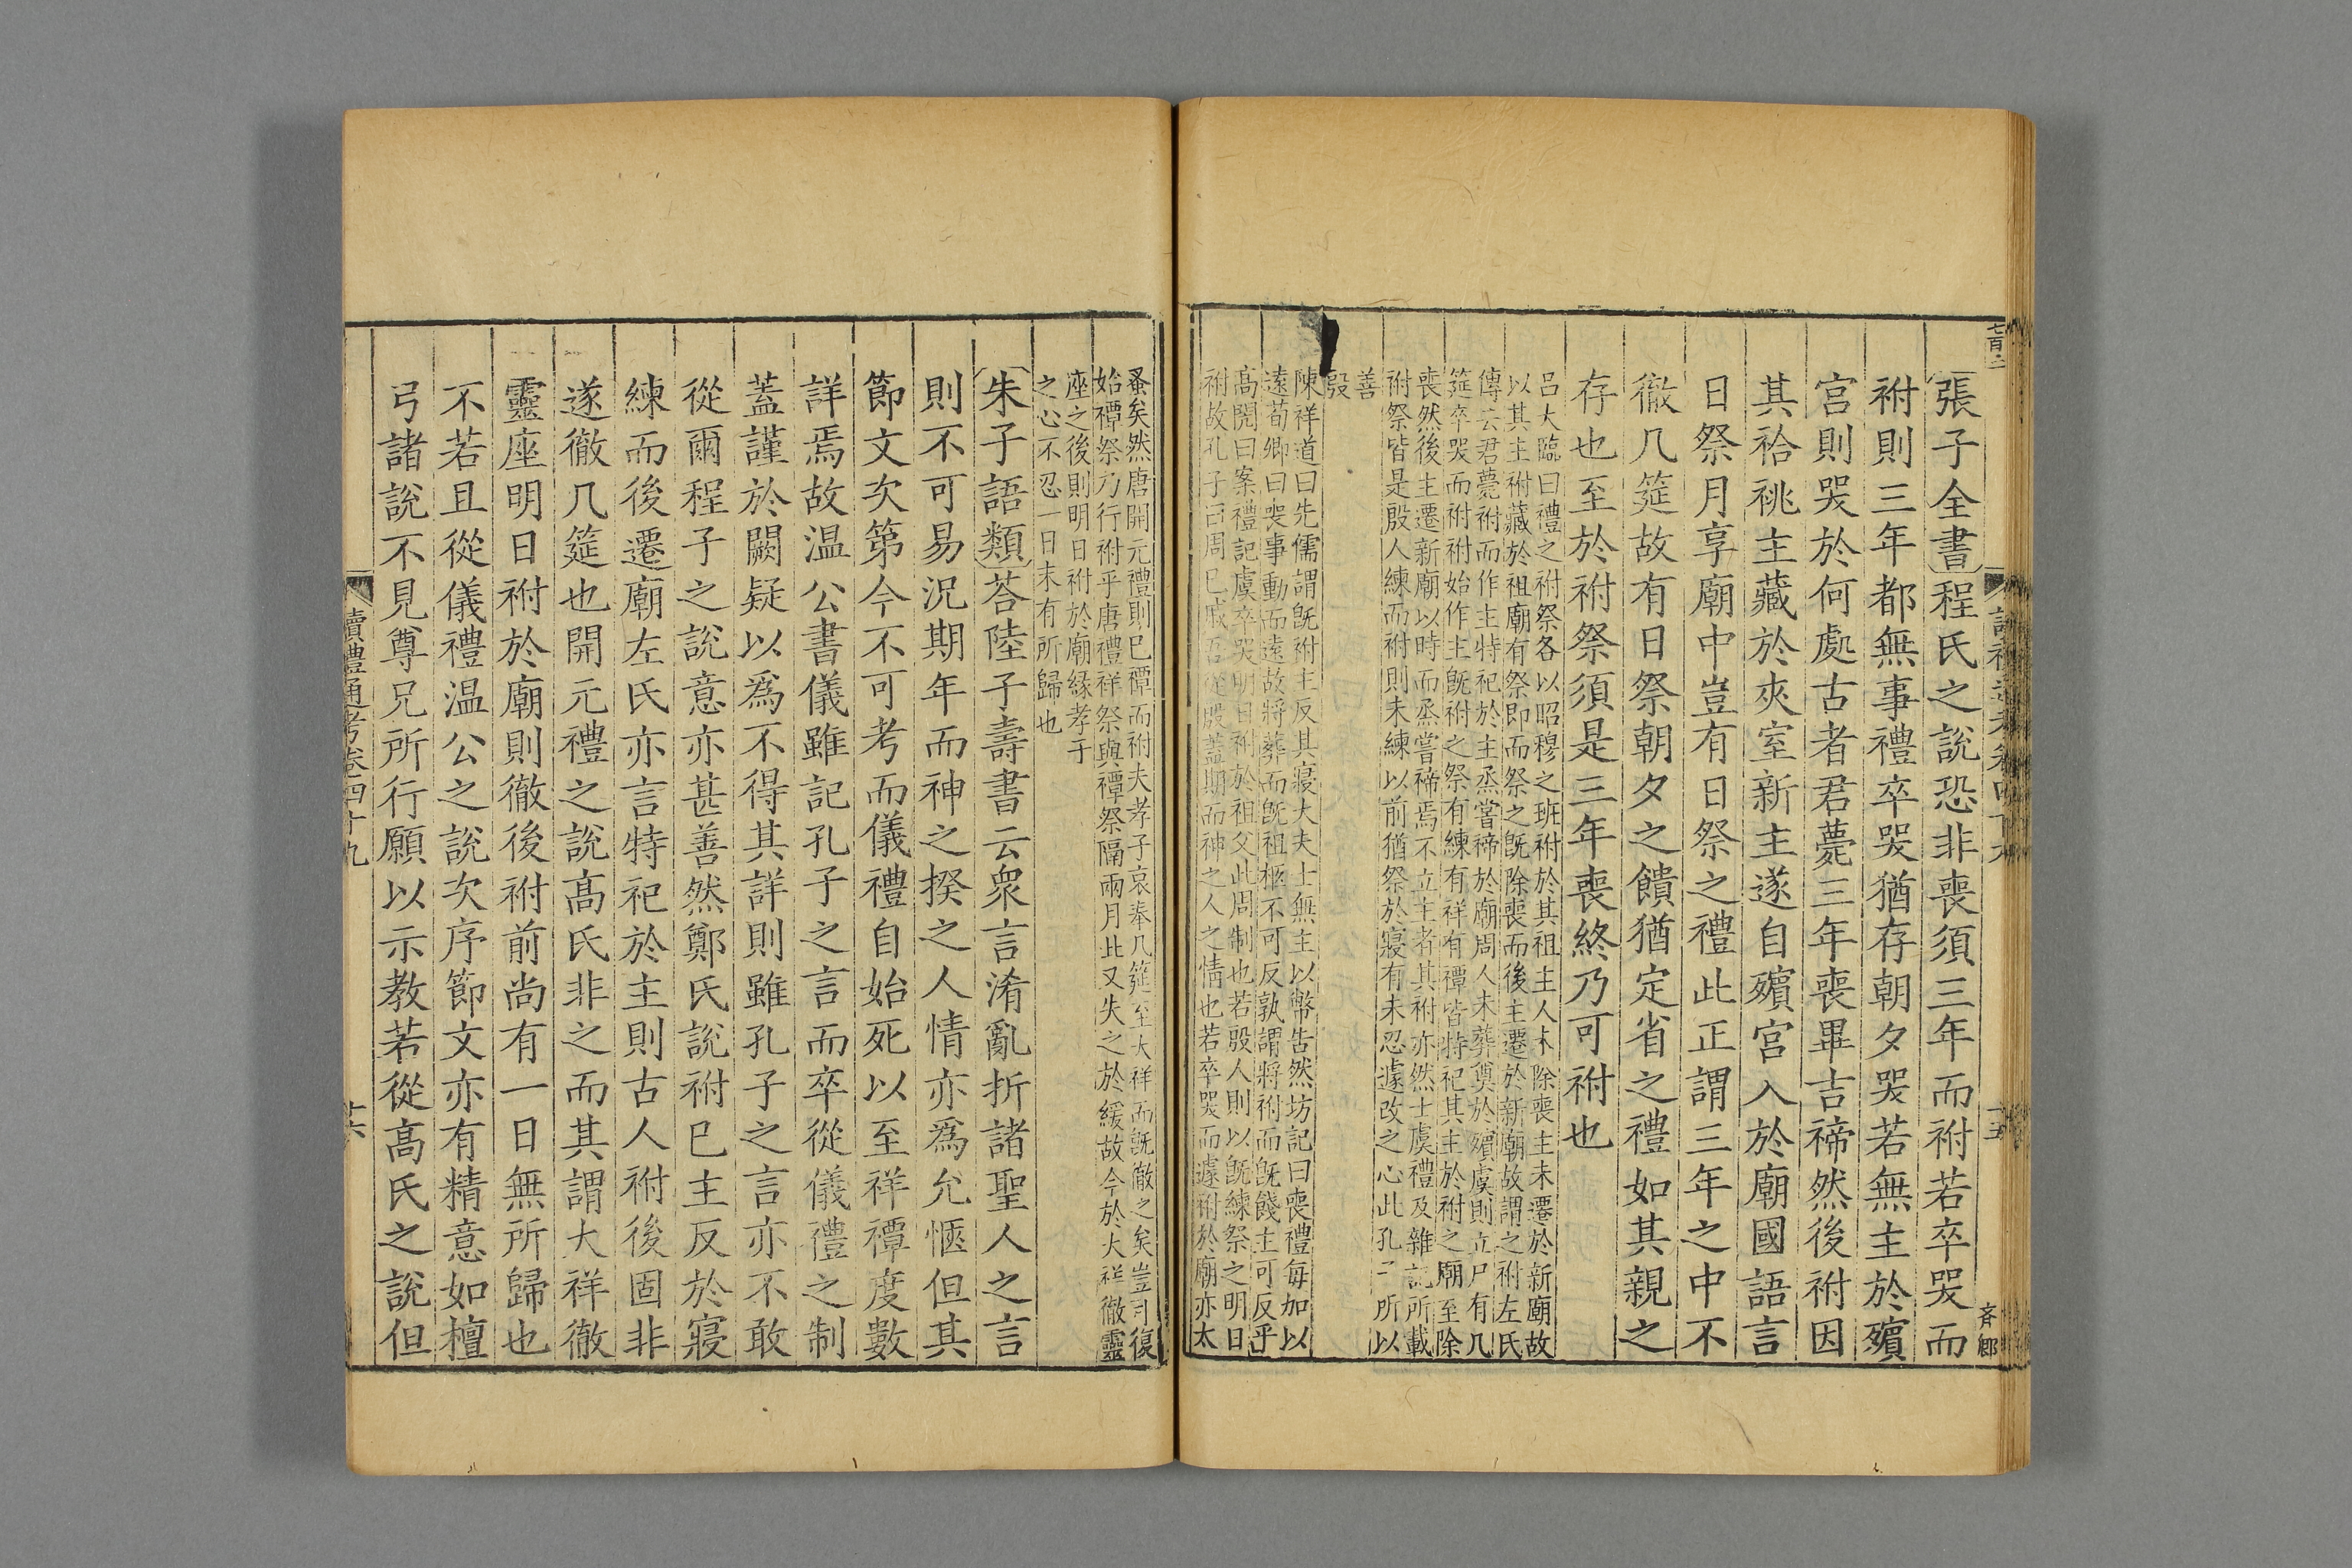 張子全書程氏之說恐非喪須三年而祔若卒哭而
祔則三年都無事禮卒哭猶存朝夕哭若無主於殯
宮則哭於何處古者君薨三年喪畢吉禘然後祔因
其祫祧主藏於夾室新主遂自殯宮入於廟國語言
日祭月享廟中豈有日祭之禮此正謂三年之中不
徹几筵故有日祭朝夕之饋猶定省之禮如其親之
存也至於祔祭須是三年喪終乃可祔也
呂大臨曰禮之祔祭各以昭穆之班祔於其祖主人未除喪主未遷於新廟故
以其主祔藏於祖廟有祭即而祭之旣除喪而後主遷於新廟故謂之祔左氏
傳云君薨祔而作主特祀於主烝嘗禘於廟周人未葬奠於殯虞則立尸有几
筵卒哭而祔祔始作主旣祔之祭有練有祥有禫皆特祀其主於祔之廟至除
喪然後主遷新廟以時而烝嘗禘焉不立主者其祔亦然士虞禮及雜記所載
祔祭皆是殷人練而祔則未練以前猶祭於寢有未忍遽改之心此孔子所以
善
殷
陳祥道曰先儒謂旣祔主反其寢大夫士無主以幣告然坊記曰喪禮每加以
遠荀卿曰喪事動而遠故將葬而旣祖柩不可反孰謂將祔而旣餞主可反乎
高閌曰案禮記虞卒哭明日祔於祖父此周制也若殷人則以旣練祭之明日
祔故孔子曰周已戚吾從殷蓋期而神之人之情也若卒哭而遽祔於廟亦太
蚤矣然唐開元禮則已禫而祔夫孝子哀奉几筵至大祥而旣徹之矣豈可復
始禫祭乃行祔乎唐禮祥祭與禫祭隔兩月此又失之於緩故今於大祥徹靈
座之後則明日祔於廟緣孝子
之心不忍一日末有所歸也
朱子語類荅陸子壽書云衆言淆亂折諸聖人之言
則不可易況期年而神之揆之人情亦爲允愜但其
節文次第今不可考而儀禮自始死以至祥禫度數
詳焉故温公書儀雖記孔子之言而卒從儀禮之制
蓋謹於闕疑以爲不得其詳則雖孔子之言亦不敢
從爾程子之說意亦甚善然鄭氏說祔已主反於寢
練而後遷廟左氏亦言特祀於主則古人祔後固非
遂徹几筵也開元禮之說高氏非之而其謂大祥徹
靈座明日祔於廟則徹後祔前尚有一日無所歸也
不若且從儀禮温公之說次序節文亦有精意如檀
弓諸說不見尊兄所行願以示教若從高氏之說但
讀禮通考卷四十九